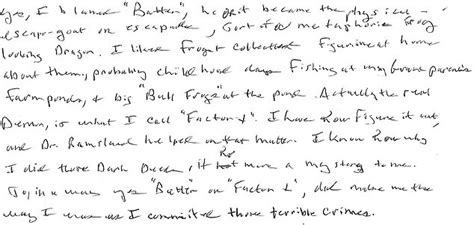 yes, I blame "Batter", he or it became the physical -
escape-goat or escapade, Sort of metaphoric frog
looking Dragon. I liked Frogs & collected figurines at home
about them, probably child hood days fishing at my Grand parents
farm ponds, & big "Bull Frogs" at the pond. Actually the real
Demon, is what I call "Factor X". I have now figure it out,
and Dr. Ramsland helped on that matter. I know now why
I did those Dark Deeds, it not more a mystery to me.
in a way yes "Batter" or "Factor X", did make me the
way I was as I committed those terrible crimes.